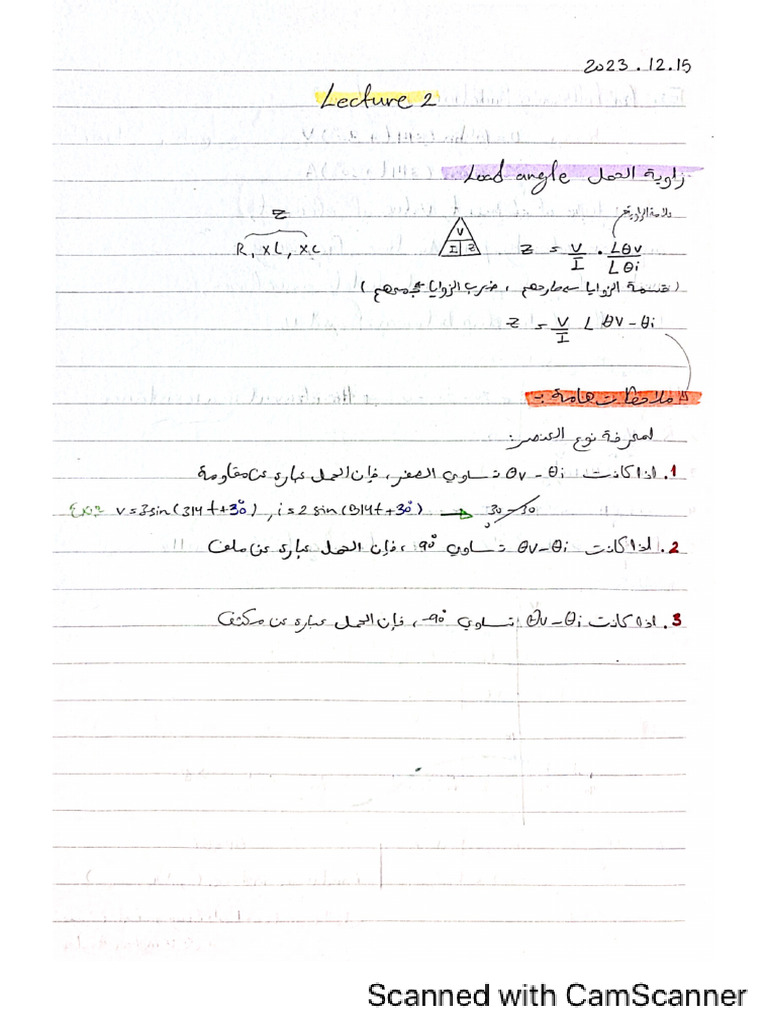 2023.12.15
Lecture 2
زاوية الحمل Load angle
علامة الزاوية
Z
R, XL, XC
V
I Z
Z = V/I . ∟θv/∟θi
(قسمة الزوايا طرحهم ، ضرب الزوايا جمعهم)
Z = V/I ∟θv-θi
ملاحظات هامة :-
لمعرفة نوع العنصر:
1. اذا كانت θv-θi تساوي الصفر، فإن الحمل عبارة عن مقاومة
Ex:- v=3sin(314t+30°), i=2sin(314t+30°) → 30-30
2. اذا كانت θv-θi تساوي 90°، فإن الحمل عبارة عن ملف
3. اذا كانت θv-θi تساوي -90°، فإن الحمل عبارة عن مكثف
Scanned with CamScanner